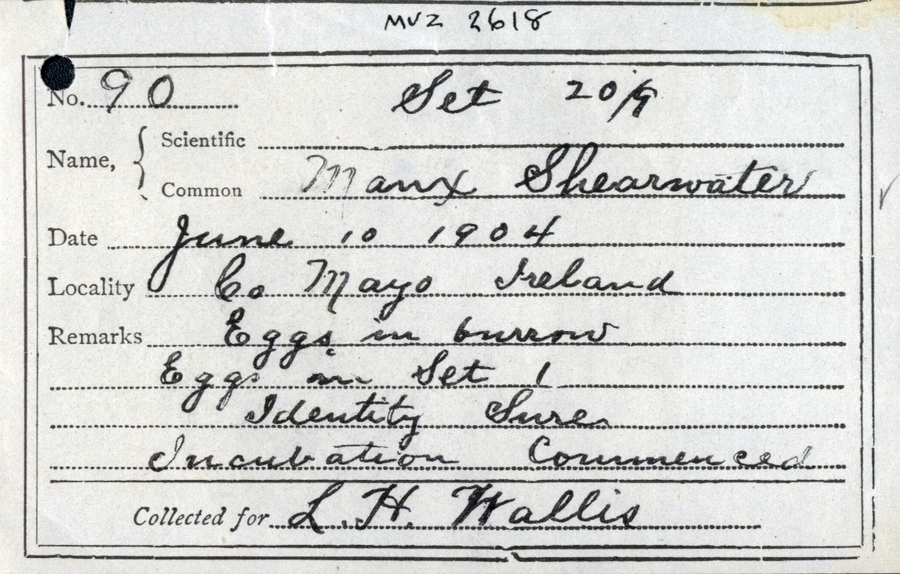 MVZ 2618
No. 90 Set 20/9
Name, { Scientific
Common Manx Shearwater
Date June 10 1904
Locality Co Mayo Ireland
Remarks Eggs in burrow
Eggs in Set 1
Identity Sure
Incubation Commenced
Collected for L. H. Wallis